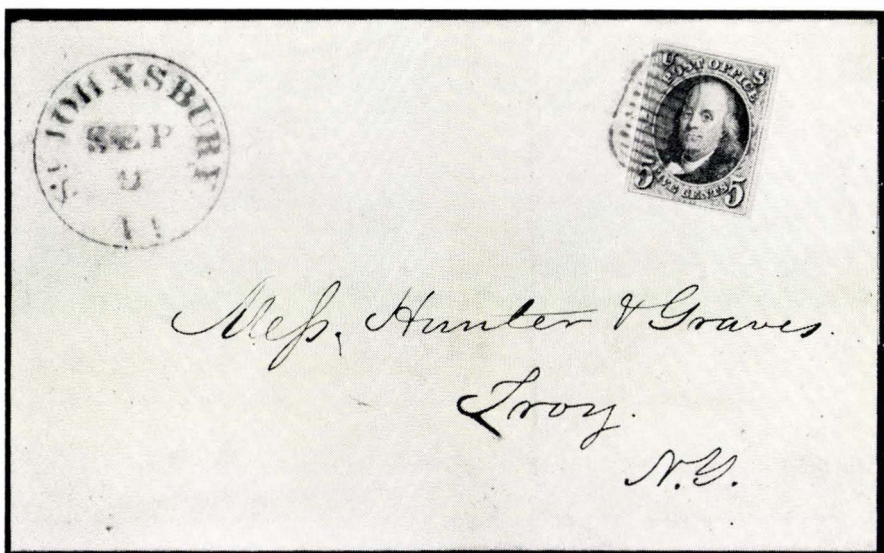 ST JOHNSBURY
SEP
9
U S
POST OFFICE
FIVE CENTS
5 5
Mess. Hunter & Graves.
Troy.
N.Y.